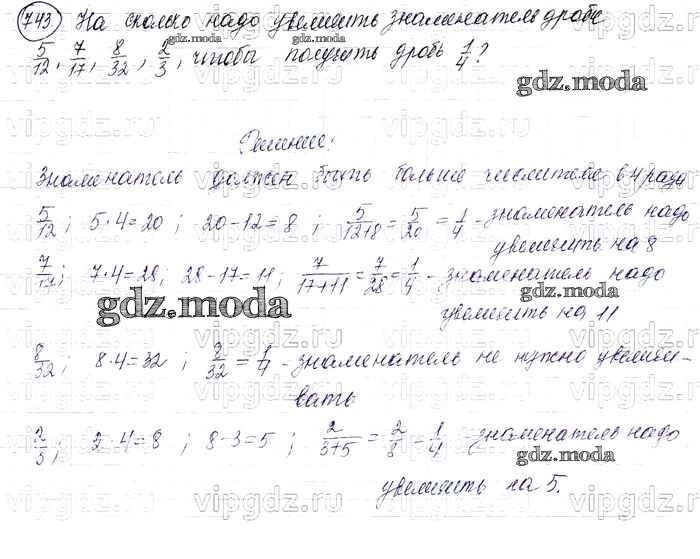 743 На сколько надо увеличить знаменатель дроби
5/12, 7/17, 8/32, 2/3, чтобы получить дробь 1/4?
gdz.moda
Решение:
Знаменатель должен быть больше числителя в 4 раза
5/12; 5·4=20; 20-12=8; 5/12+8=5/20=1/4 - знаменатель надо
увеличить на 8
7/17; 7·4=28; 28-17=11; 7/17+11=7/28=1/4 - знаменатель надо
увеличить на 11
gdz.moda
8/32; 8·4=32; 8/32=1/4 - знаменатель не нужно увеличи-
вать
2/3; 2·4=8; 8-3=5; 2/3+5=2/8=1/4 - знаменатель надо
gdz.moda
увеличить на 5.
vipgdz.ru